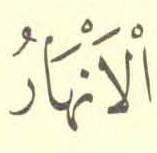 اْلاَنْهَارُ